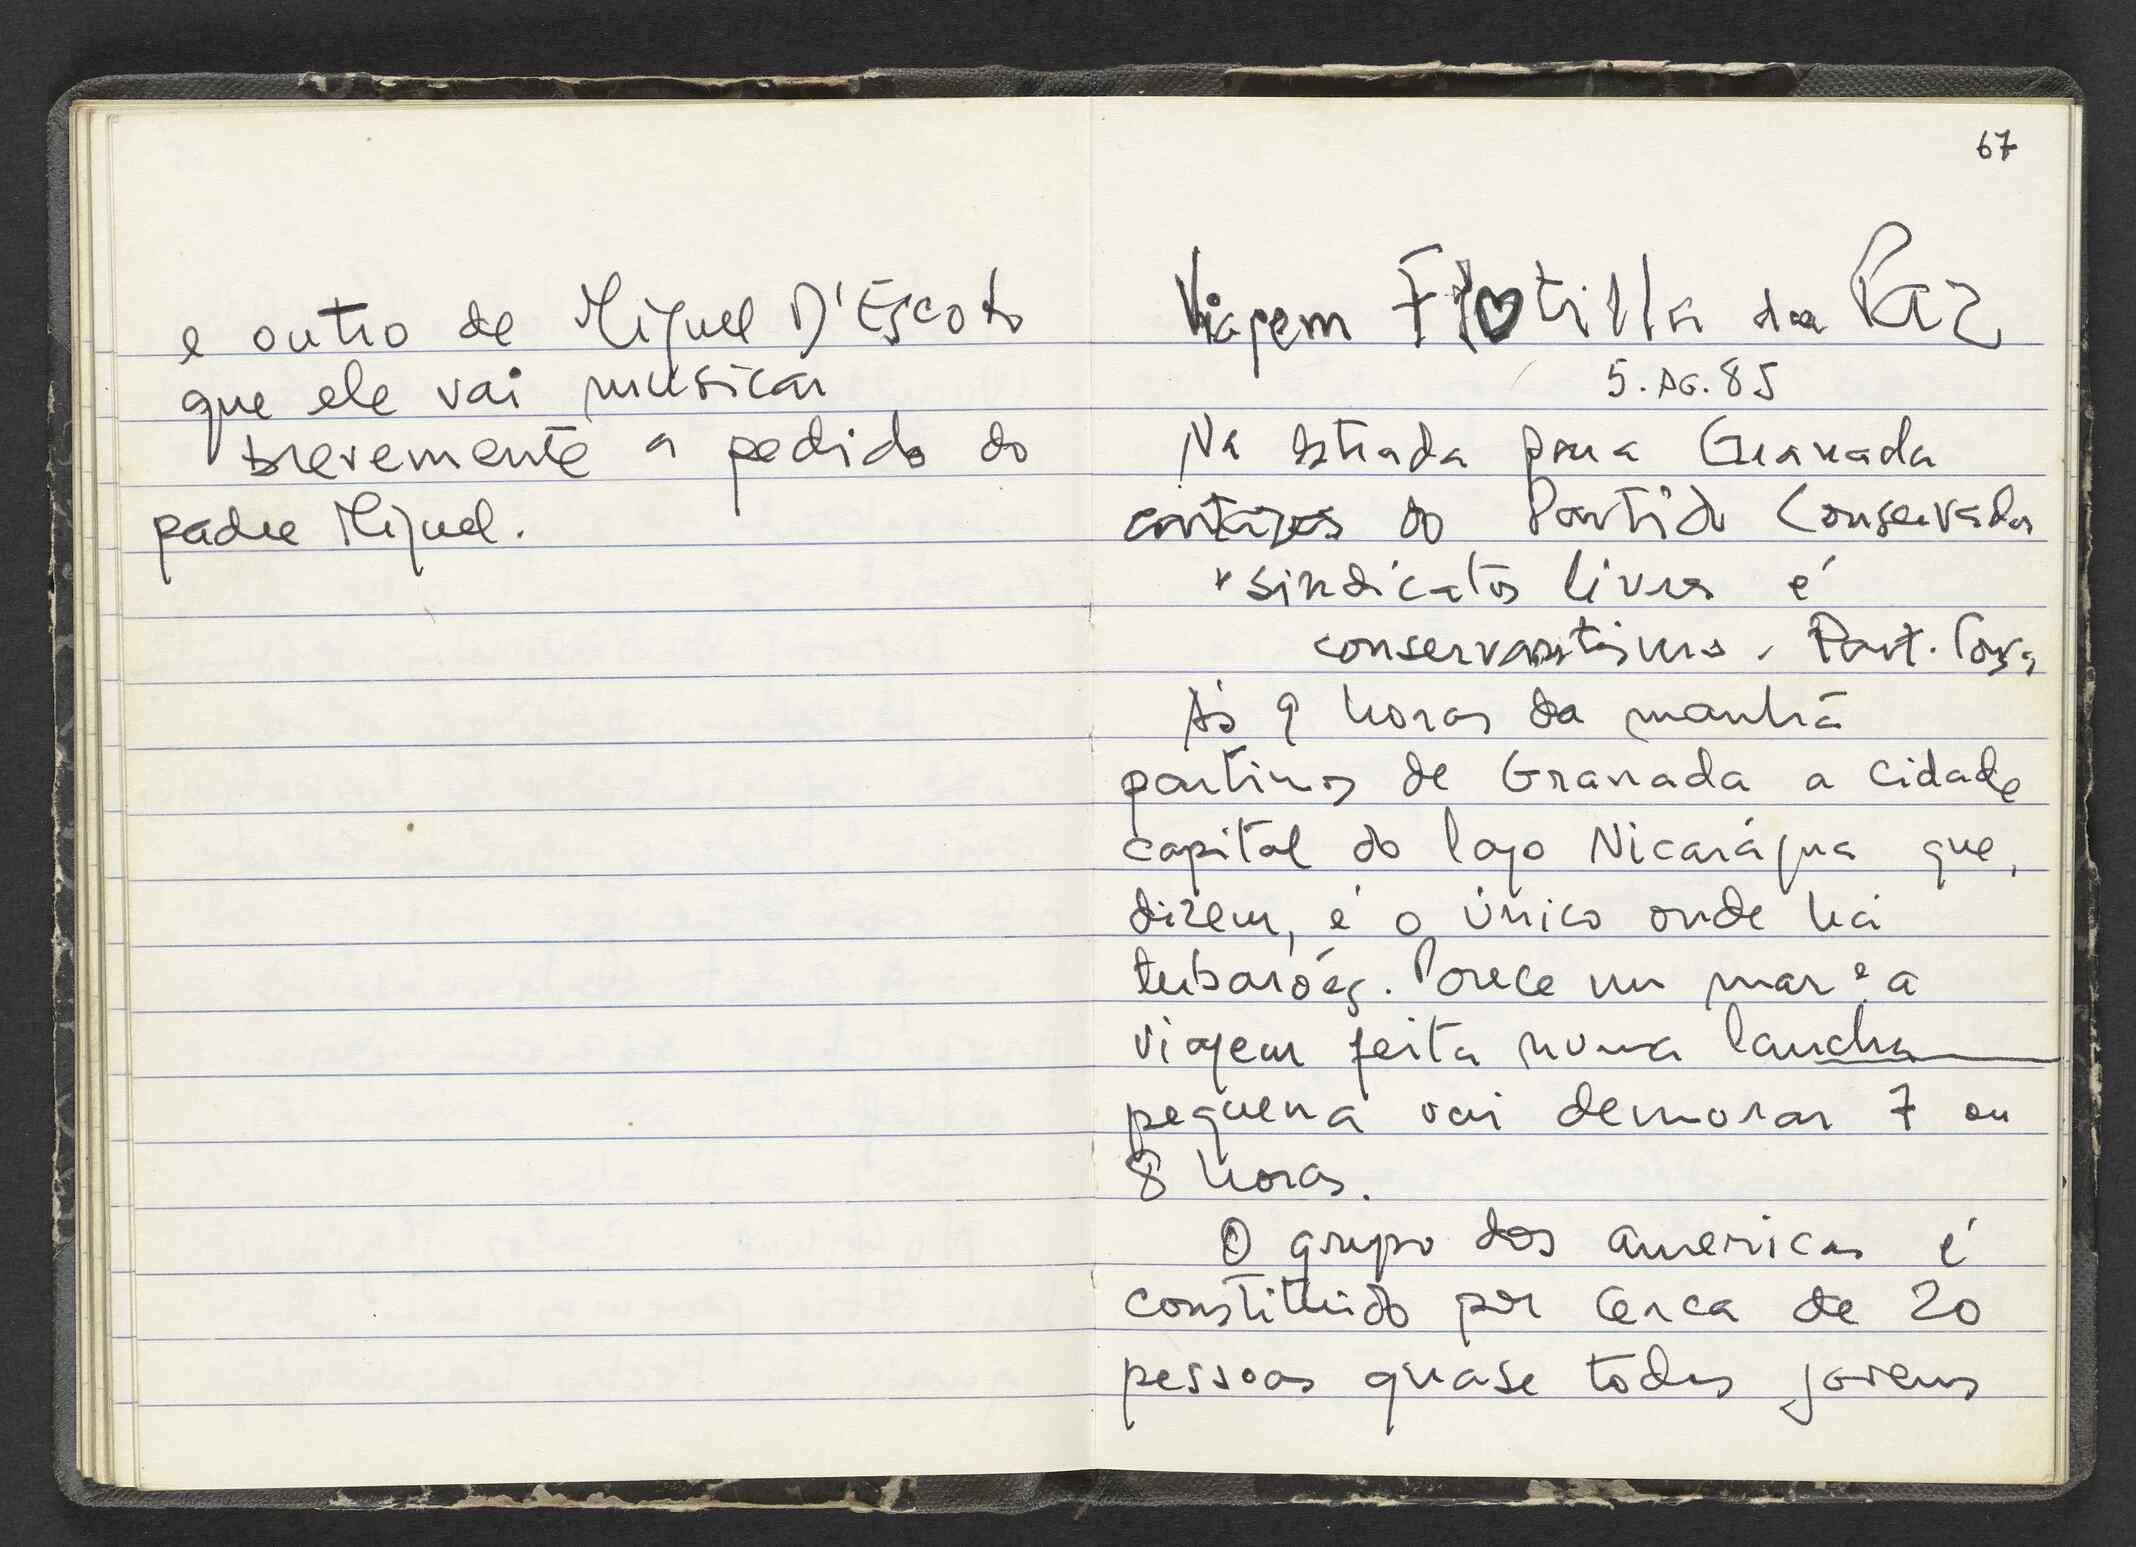 e outro de Miguel D'Escoto
que ele vai musicar
brevemente a pedido do
padre Miguel.
67
Viagem Flotilla da Paz
5.AG.85
Na estrada para Granada
cartazes do Partido Conservador
"sindicatos livres é
conservantismo. Part. Cons.
Às 9 horas da manhã
partimos de Granada a cidade
capital do lago Nicarágua que,
dizem, é o único onde há
tubarões. Parece um mar e a
viagem feita numa lancha
pequena vai demorar 7 ou
8 horas.
O grupo dos americas é
constituido por cerca de 20
pessoas quase todos jovens